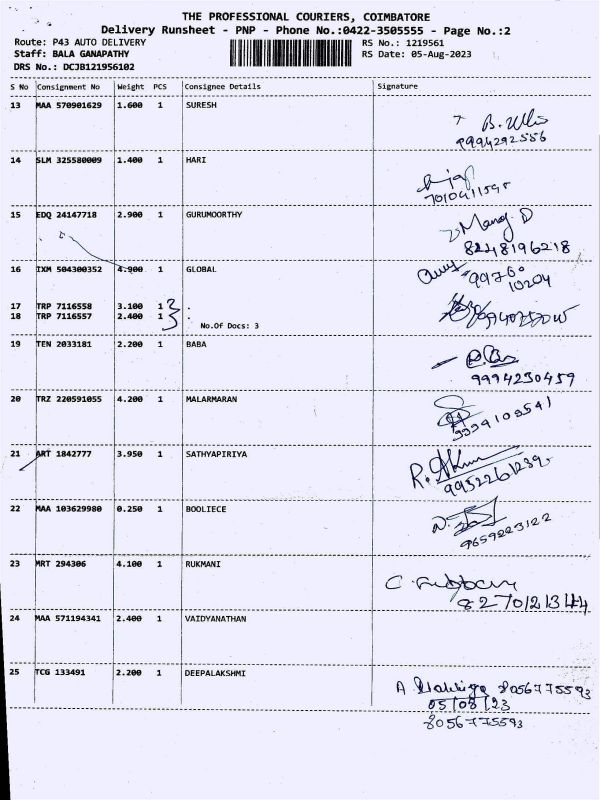 THE PROFESSIONAL COURIERS, COIMBATORE
Delivery Runsheet - PNP - Phone No.:0422-3505555 - Page No.:2
Route: P43 AUTO DELIVERY RS No.: 1219561
Staff: BALA GANAPATHY RS Date: 05-Aug-2023
DRS No.: DCJB121956102
S No Consignment No Weight PCS Consignee Details Signature
13 MAA 570901629 1.600 1 SURESH
9994292556
14 SLM 325580009 1.400 1 HARI
15 EDQ 24147718 2.900 1 GURUMOORTHY
Manoj. D
8248196218
16 IXM 504300352 4.900 1 GLOBAL
99760
10204
17 TRP 7116558 3.100 1 .
18 TRP 7116557 2.400 1 .
No.Of Docs: 3
19 TEN 2033181 2.200 1 BABA
9994230459
20 TRZ 220591055 4.200 1 MALARMARAN
21 ART 1842777 3.950 1 SATHYAPIRIYA
22 MAA 103629980 0.250 1 BOOLIECE
23 MRT 294306 4.100 1 RUKMANI
24 MAA 571194341 2.400 1 VAIDYANATHAN
25 TCG 133491 2.200 1 DEEPALAKSHMI
8056775593
05/08/23
8056775593